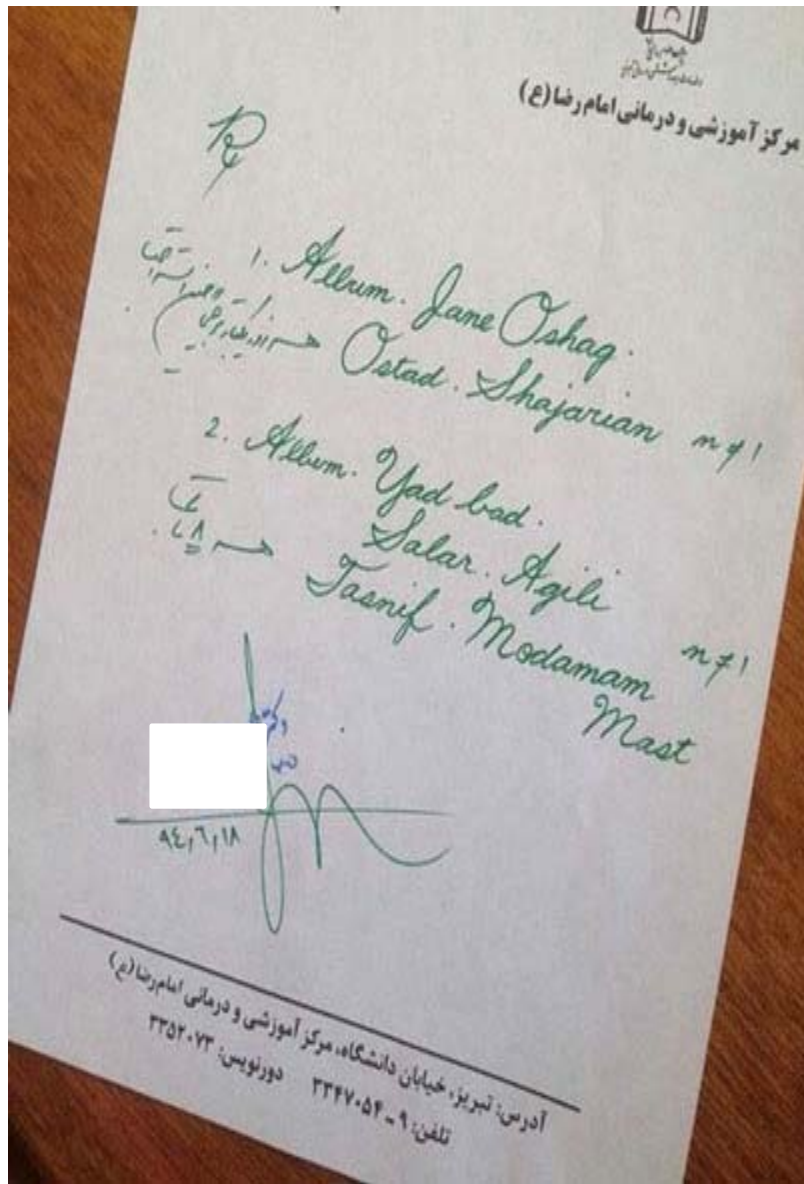 مرکز آموزشی و درمانی امام رضا (ع)
Rx
1. Album. Jane Oshaq.
Ostad. Shajarian n≠1
2. Album. Yad bad.
Salar. Agili
هر ۸
Tasnif. Modamam n≠1
Mast
دکتر
٩٤,٦,١٨
آدرس: تبریز، خیابان دانشگاه، مرکز آموزشی و درمانی امام رضا (ع)
تلفن: ۹ - ۳۳۴۷۰۵۴ دورنویس: ۳۳۵۲۰۷۳